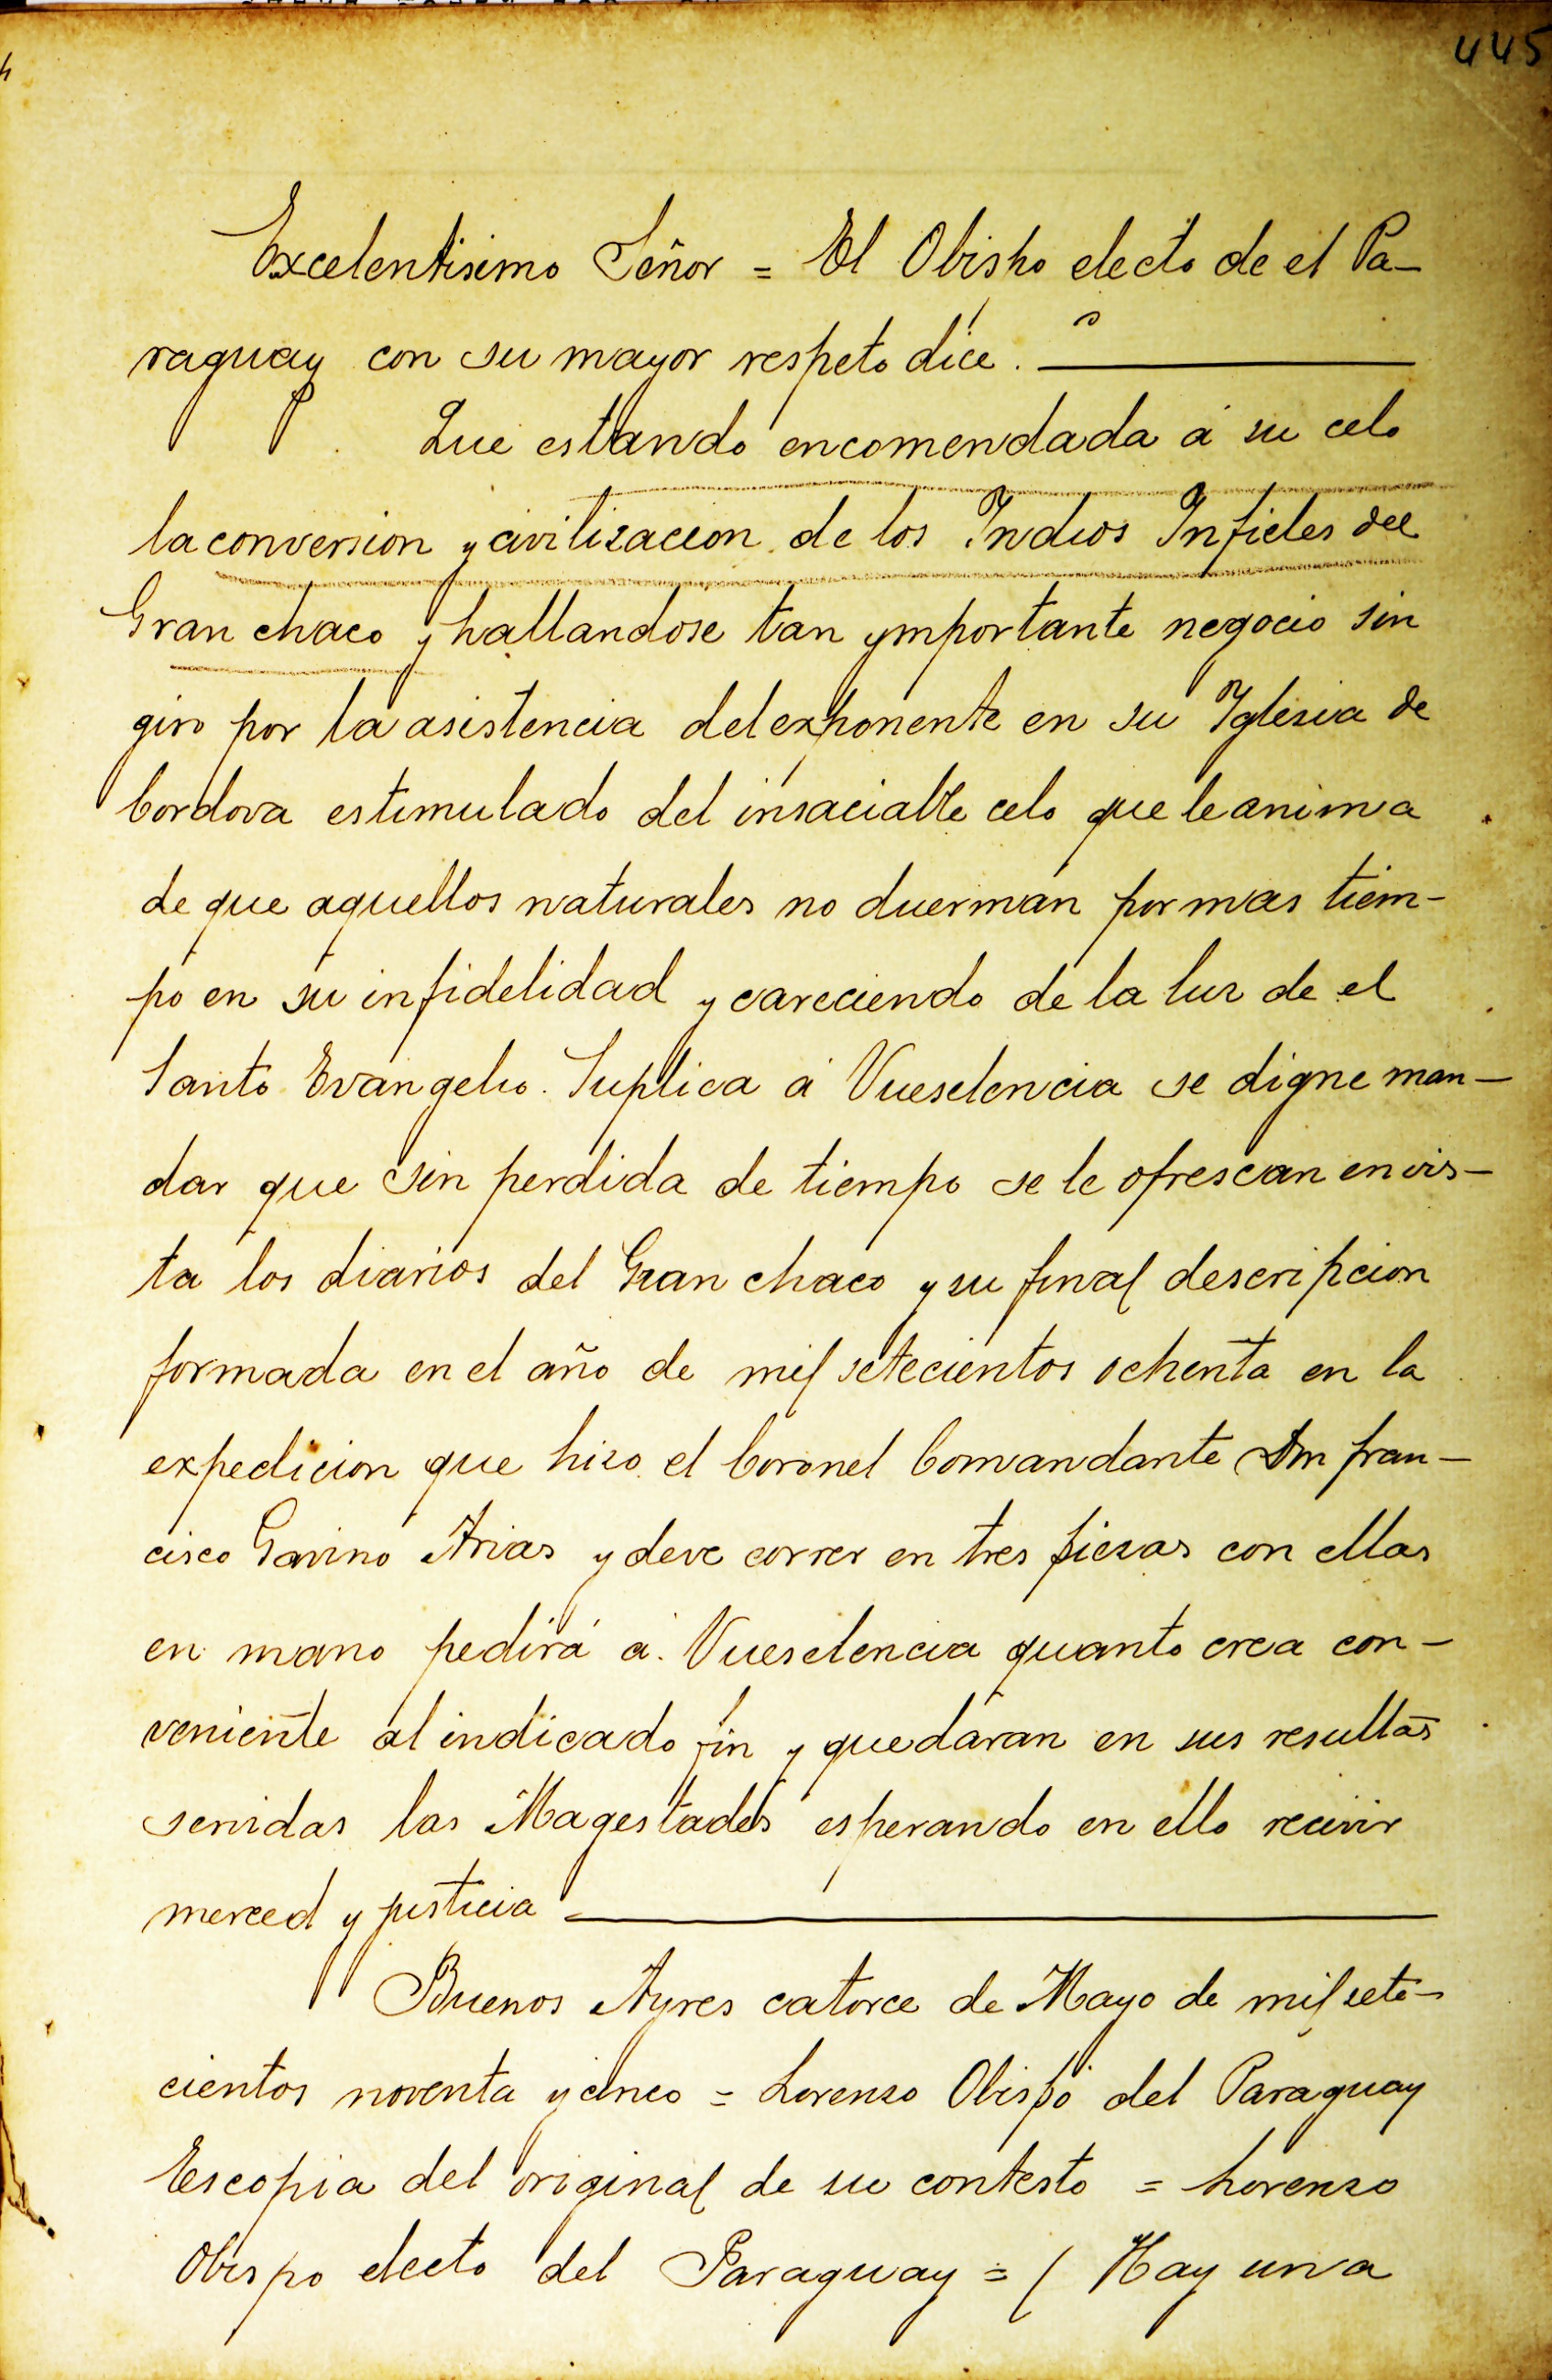 445
Excelentisimo Señor = El Obispo electo de el Pa-
raguay con su mayor respeto dice.
Que estando encomendada á su celo
la conversion y civilizacion de los Indios Infieles del
Gran chaco y hallandose tan ymportante negocio sin
giro por la asistencia del exponente en su Iglesia de
Cordova estimulado del insaciable celo que le anima
de que aquellos naturales no duerman por mas tiem-
po en su infidelidad y careciendo de la luz de el
Santo Evangelio. Suplica á Vueselencia se digne man-
dar que sin perdida de tiempo se le ofrescan en vis-
ta los diarios del Gran chaco y su final descripcion
formada en el año de mil setecientos ochenta en la
expedicion que hizo el Coronel Comandante Dn fran-
cisco Gavino Arias y deve correr en tres piezas con ellas
en mano pedirá á Vueselencia quanto crea con-
veniente al indicado fin y quedaran en sus resultas
servidas las Magestades esperando en ello recivir
merced y justicia
Buenos Ayres catorce de Mayo de mil sete-
cientos noventa y cinco = Lorenzo Obispo del Paraguay
Es copia del original de su contesto = Lorenzo
Obispo electo del Paraguay = ( Hay una